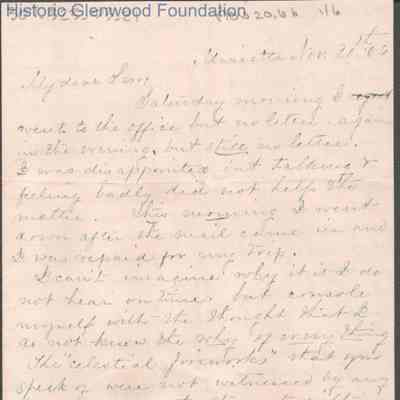 Historic Glenwood Foundation
1/6
Marietta Nov. 20th 66
My dear
Saturday morning I
went to the office but no letter. again
in the evening, but still no letter.
I was disappointed but talking &
feeling badly did not help the
matter. This morning I went
down after the mail came in and
I was repaid for my trip.
I can't imagine why it is I do
not hear on time but console
myself with the thought that I
do not know the why of every thing
The "celestial fireworks" that you
speak of were not witnessed by any